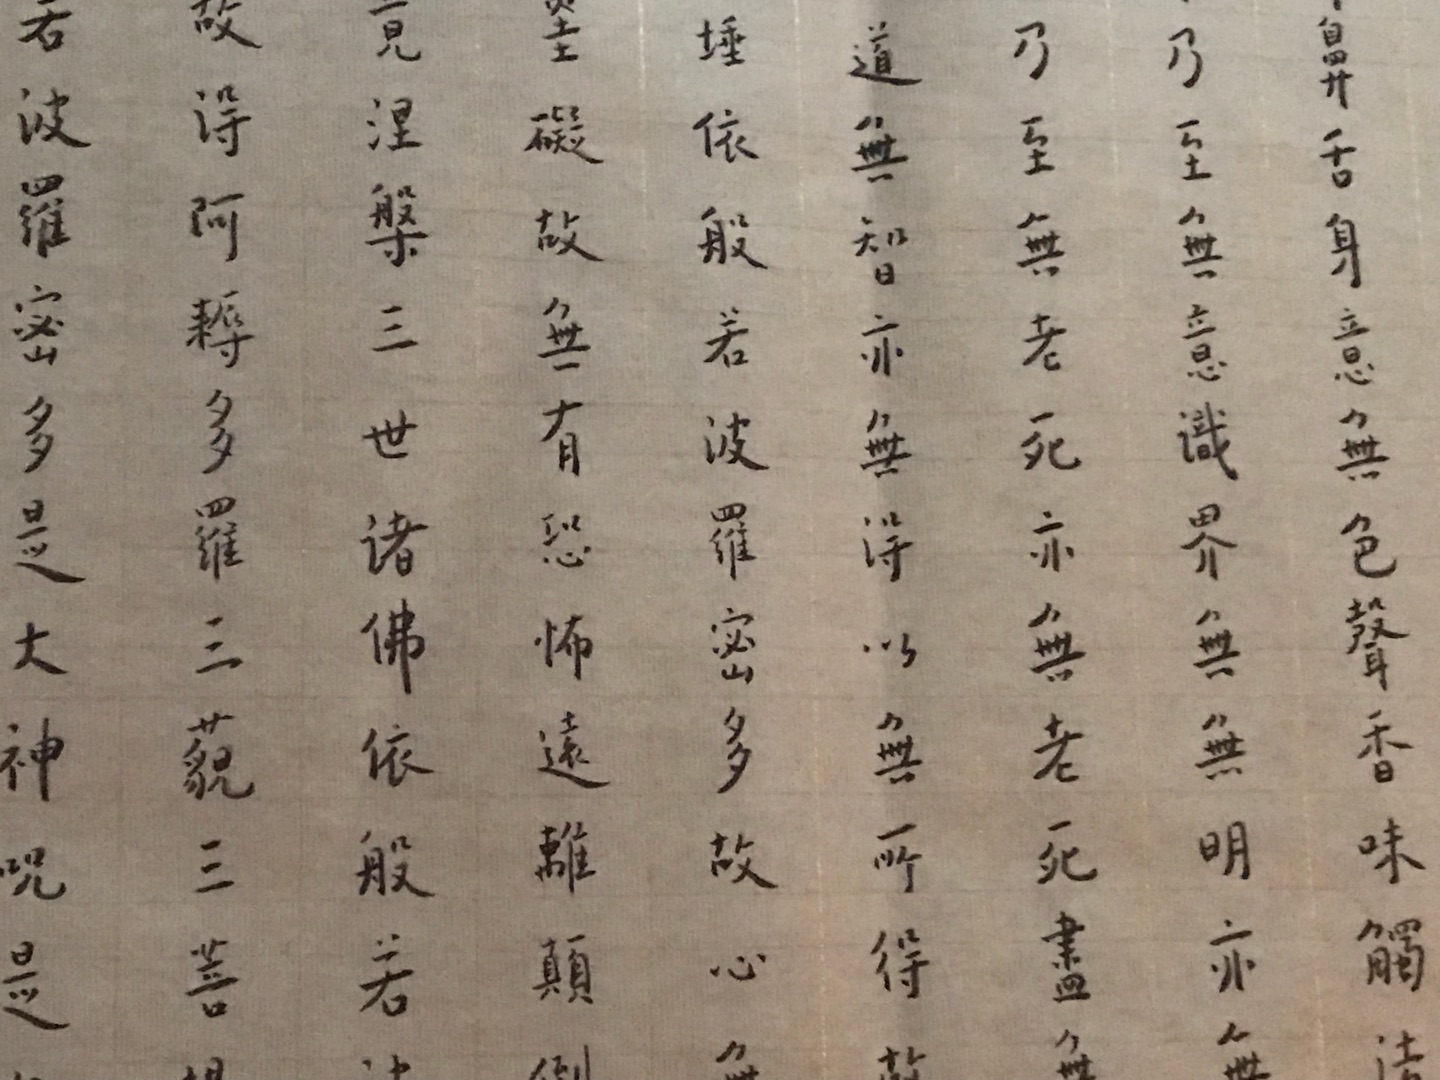 鼻舌身意無色聲香味觸法
乃至無意識界無無明亦無
乃至無老死亦無老死盡無
道無智亦無得以無所得故
埵依般若波羅密多故心無
罣礙故無有恐怖遠離顛倒
竟涅槃三世諸佛依般若波
故得阿耨多羅三藐三菩提
若波羅密多是大神呪是